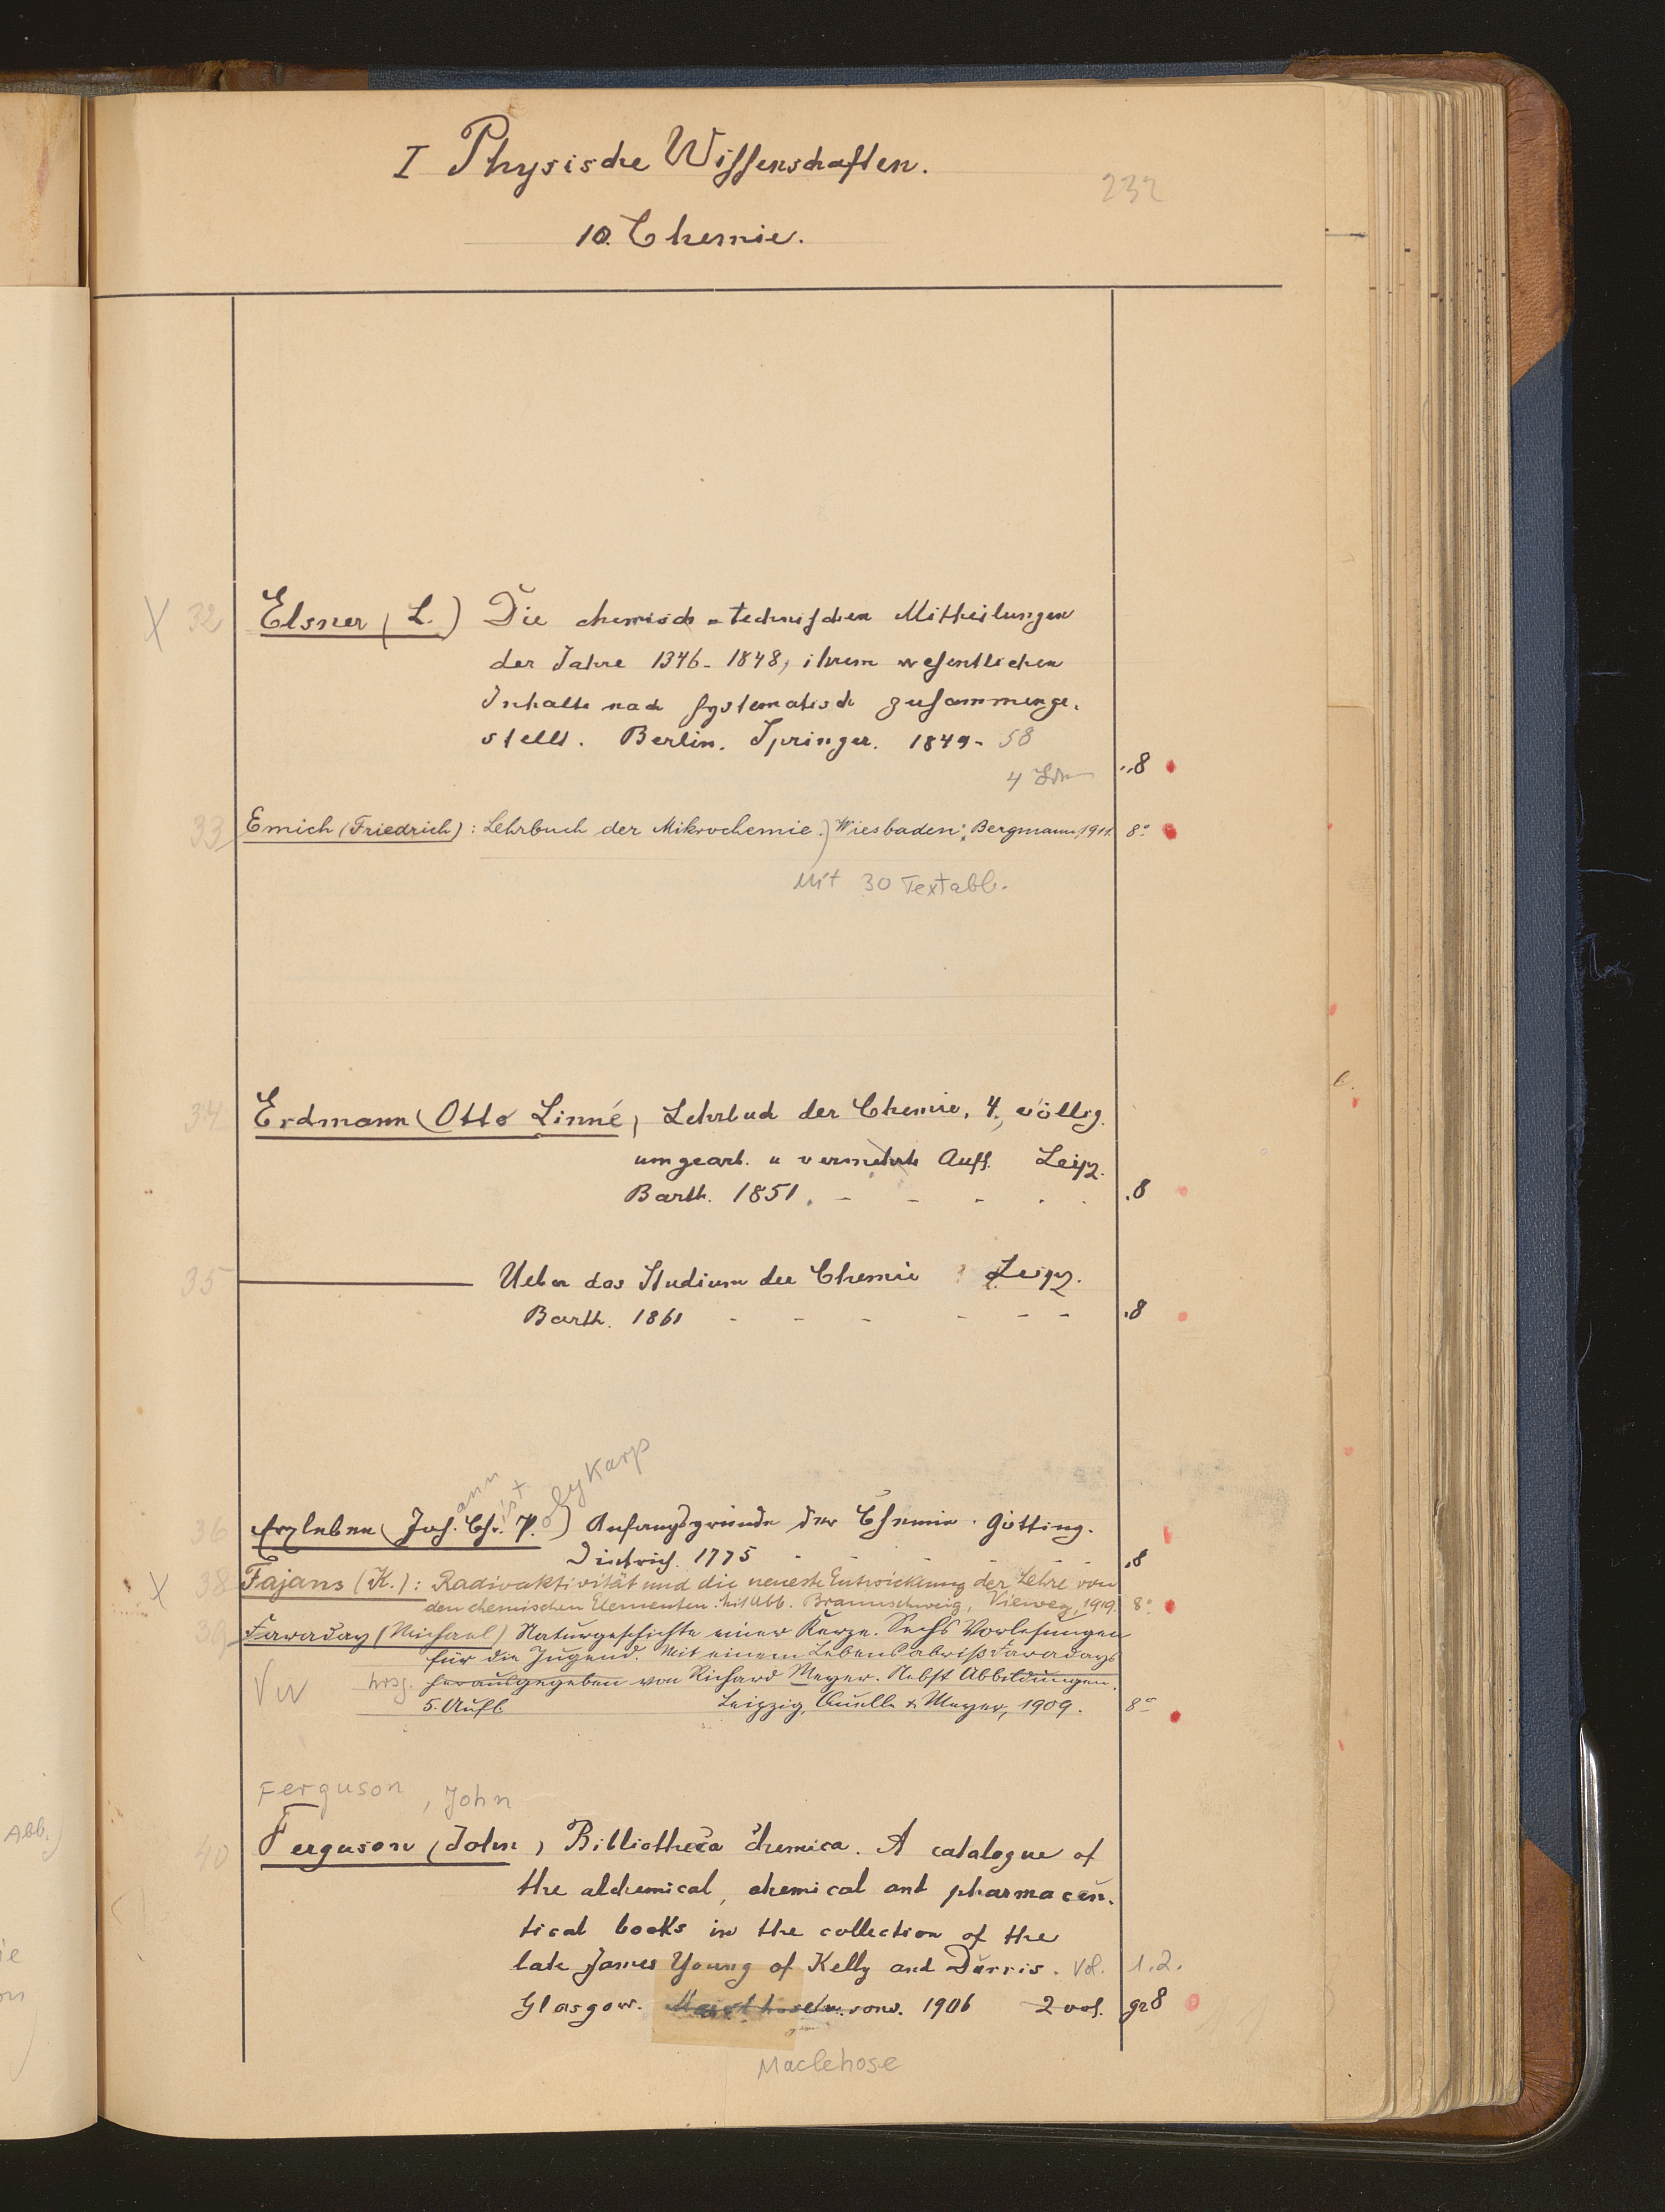 I Physische Wissenschaften.
232
10. Chemie.
X 32 Elsner (L.) Die chemisch-technischen Mittheilungen
der Jahre 1846-1848, ihrem wesentlichen
Inhalte nach systematisch zusammenge-
stellt. Berlin. Springer. 1849- 58
4 Bde 8
33 Emich (Friedrich): Lehrbuch der Mikrochemie.) Wiesbaden: Bergmann, 1911. 8°
Mit 30 Textabb.
34 Erdmann (Otto Linné) Lehrbuch der Chemie, 4., völlig.
umgearb. u vermehrte Aufl. Leipz.
Barth. 1851. - - - . . .8
35 ——— Ueber das Studium der Chemie Leipz.
Barth. 1861 - - - - - - .8
ann ist olykarp
36 Erxleben (Joh. Chr. P.) Anfangsgründe der Chemie. Götting.
Dietrich. 1775 .8
X 38 Fajans (K.): Radioaktivität und die neueste Entwicklung der Lehre von
den chemischen Elementen. Mit Abb. Braunschweig, Vieweg, 1919. 8°
39 Faraday (Michael) Naturgeschichte einer Kerze. Sechs Vorlesungen
für die Jugend. Mit einem Lebensabriß Faradays
Vw hrsg. herausgegeben von Richard Meyer. Nebst Abbildungen.
5. Aufl. Leipzig, Quelle & Meyer, 1909. 8°
Ferguson, John
40 Ferguson (John) Bibliotheca chemica. A catalogue of
the alchemical, chemical and pharmaceu-
tical books in the collection of the
late James Young of Kelly and Durris. Vol. 1.2.
Glasgow. sons. 1906 2 vol. gr 8
Maclehose
Abb.)